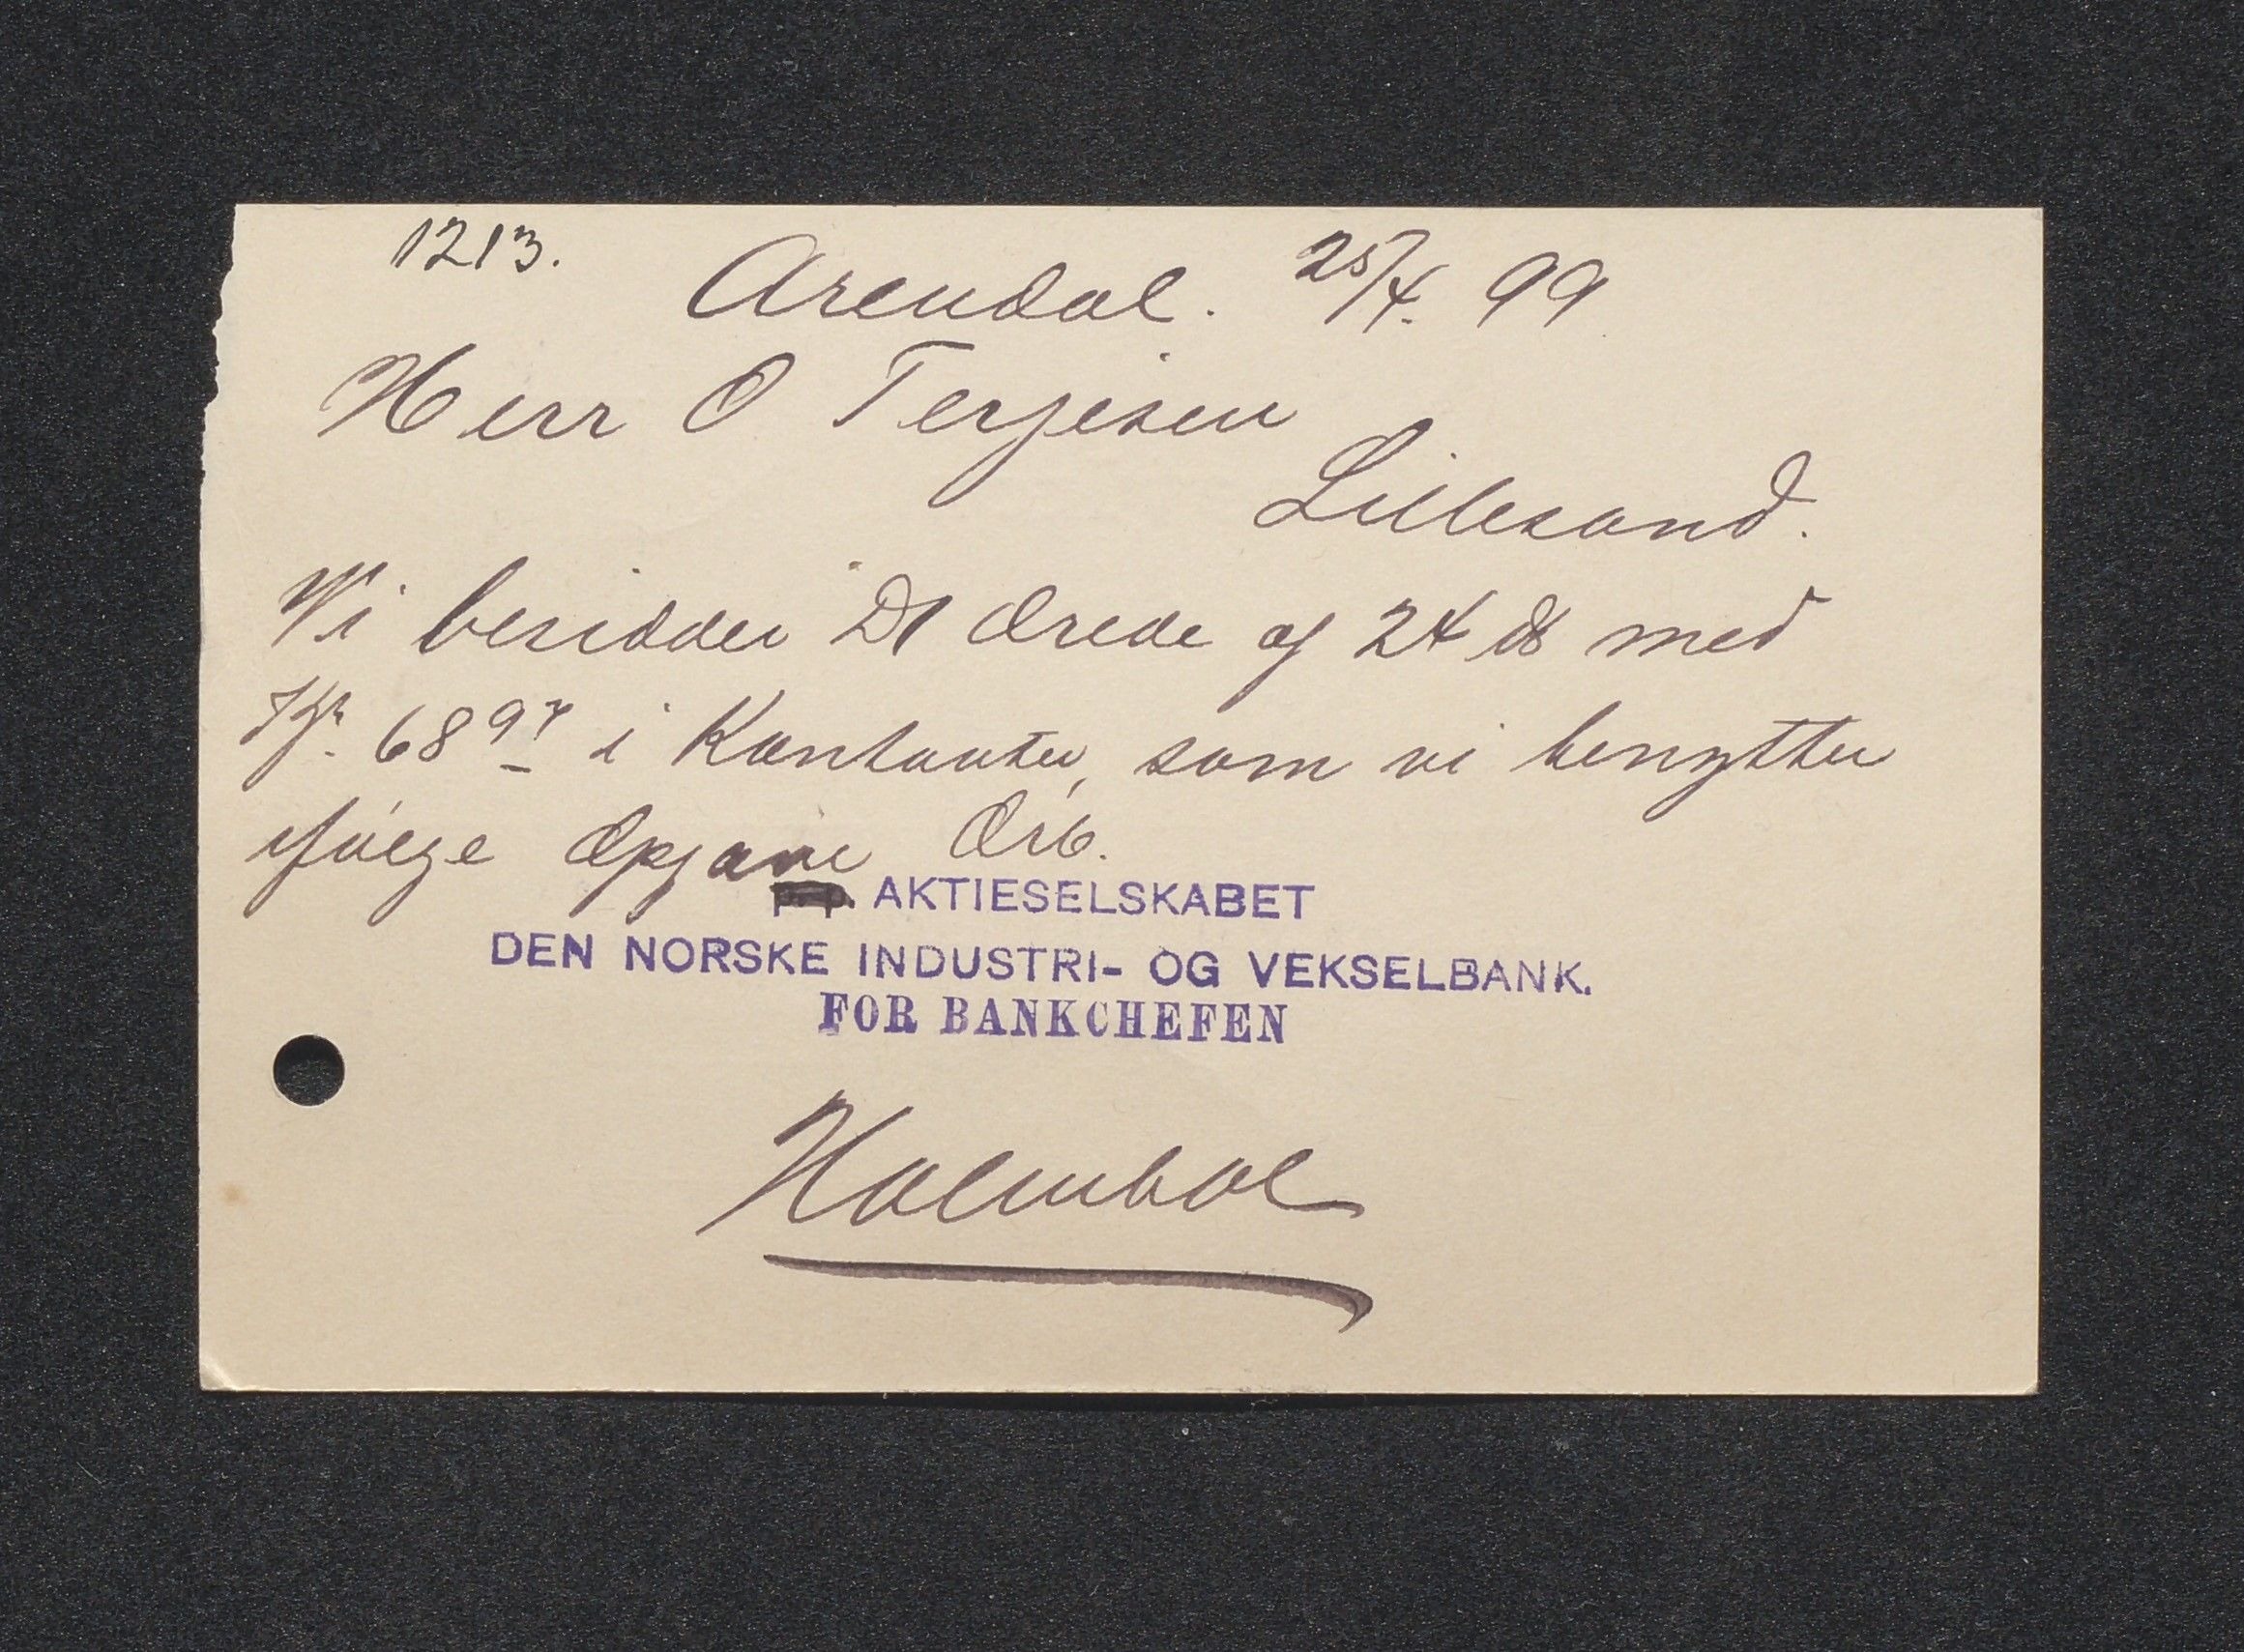 1213.
Arendal. 25/4. 99
Herr O Terjesen
Lillesand.
Vi besidder D/ Ærede af 24 ds med
Kr. 68 97 i Kontanter, som vi benytter
ifølge Opgave Ærb.
AKTIESELSKABET
DEN NORSKE INDUSTRI- OG VEKSELBANK.
FOR BANKCHEFEN
Holmboe